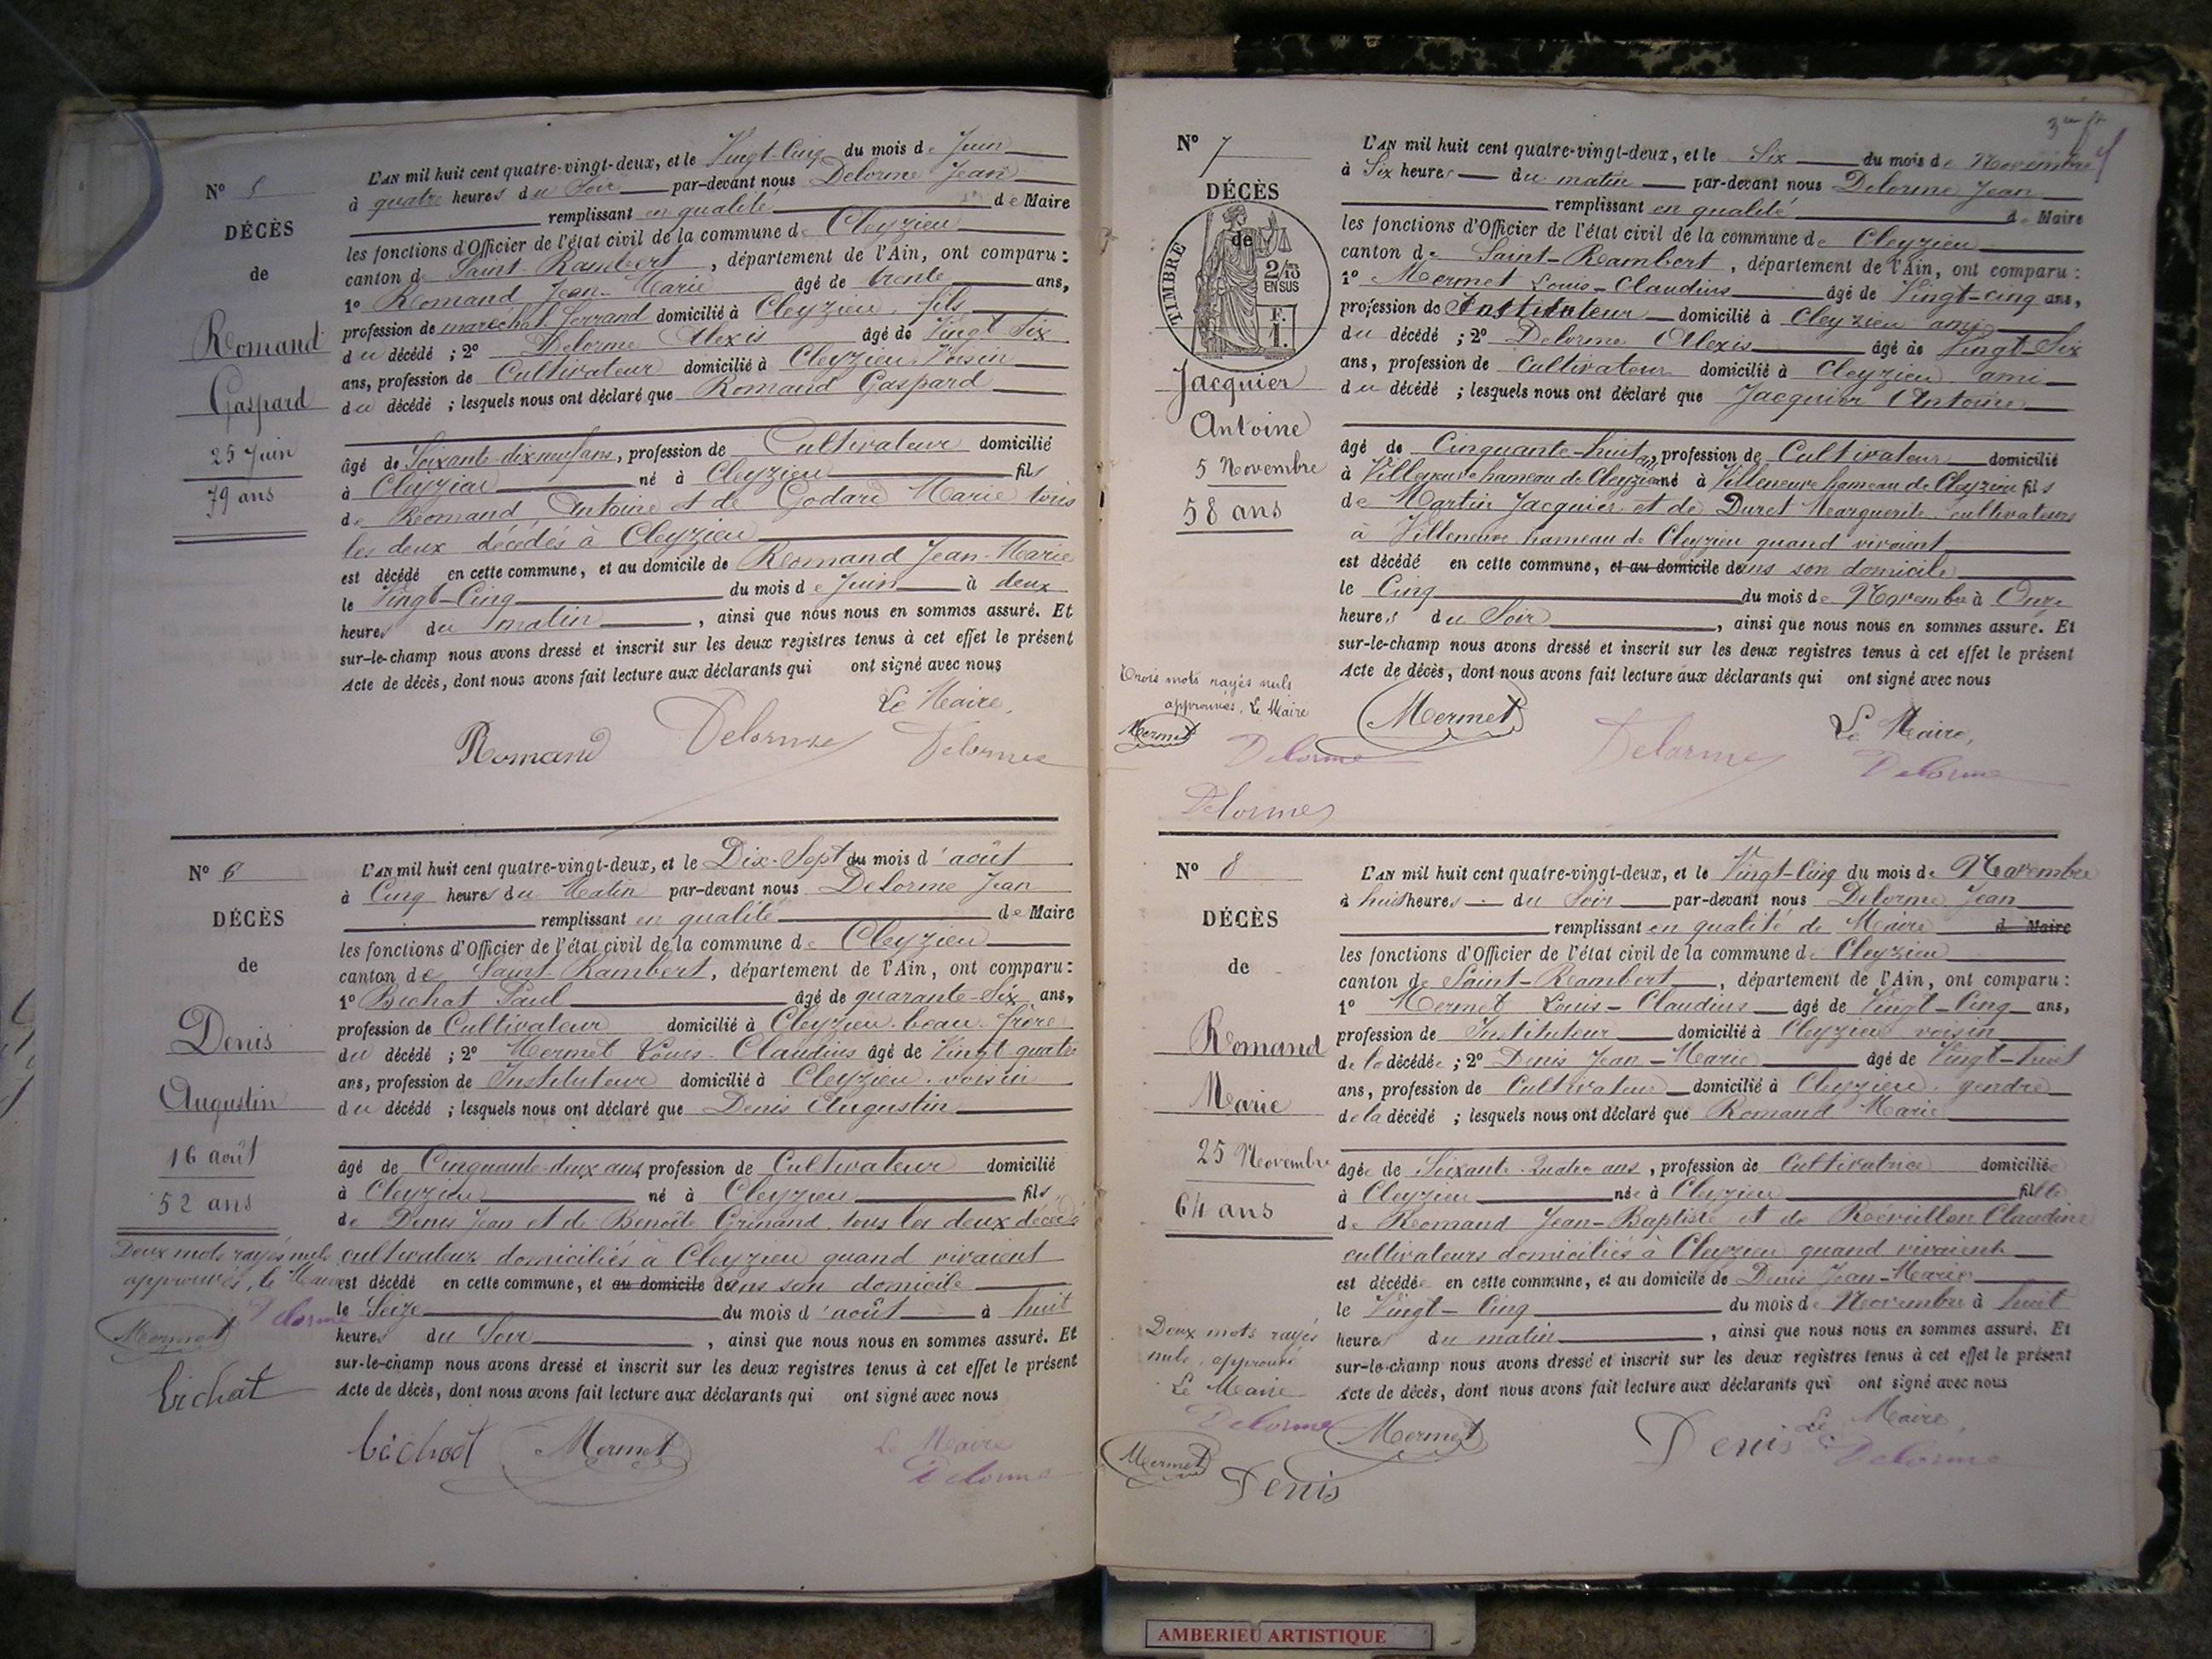 N° 5
DÉCÈS
de
Romand
Gaspard
25 Juin
79 ans
L'AN mil huit cent quatre-vingt-deux, et le Vingt-Cinq du mois de Juin
à quatre heures du Soir par-devant nous Delorme Jean
remplissant en qualité de Maire
les fonctions d'Officier de l'état civil de la commune de Cleyzieu
canton de Saint-Rambert, département de l'Ain, ont comparu :
1° Romand Jean-Marie âgé de trente ans,
profession de maréchal ferrand domicilié à Cleyzieu, fils
du décédé ; 2° Delorme Alexis âgé de Vingt Six
ans, profession de Cultivateur domicilié à Cleyzieu, Voisin
du décédé ; lesquels nous ont déclaré que Romand Gaspard
âgé de Soixante-dix neuf ans, profession de Cultivateur domicilié
à Cleyzieu né à Cleyzieu fils
de Romand Antoine et de Godard Marie tous
les deux décédés à Cleyzieu
est décédé en cette commune, et au domicile de Romand Jean-Marie
le Vingt-Cinq du mois de Juin à deux
heures du matin, ainsi que nous nous en sommes assuré. Et
sur-le-champ nous avons dressé et inscrit sur les deux registres tenus à cet effet le présent
Acte de décès, dont nous avons fait lecture aux déclarants qui ont signé avec nous
Le Maire,
Romand Delorme Delorme
N° 6
DÉCÈS
de
Denis
Augustin
16 août
52 ans
Deux mots rayés nuls
approuvés, le Maire
Delorme
Mermet
bichat
L'AN mil huit cent quatre-vingt-deux, et le Dix-Sept du mois d'août
à Cinq heures du Matin par-devant nous Delorme Jean
remplissant en qualité de Maire
les fonctions d'Officier de l'état civil de la commune de Cleyzieu
canton de Saint-Rambert, département de l'Ain, ont comparu :
1° Bichat Paul âgé de quarante-Six ans,
profession de Cultivateur domicilié à Cleyzieu, beau-frère
du décédé ; 2° Mermet Louis-Claudius âgé de Vingt quatre
ans, profession de Instituteur domicilié à Cleyzieu, voisin
du décédé ; lesquels nous ont déclaré que Denis Augustin
âgé de Cinquante-deux ans, profession de Cultivateur domicilié
à Cleyzieu né à Cleyzieu fils
de Denis Jean et de Benoîte Grinand, tous les deux décédés
cultivateurs domiciliés à Cleyzieu quand vivaient
est décédé en cette commune, et au domicile dans son domicile
le Seize du mois d'août à huit
heures du Soir, ainsi que nous nous en sommes assuré. Et
sur-le-champ nous avons dressé et inscrit sur les deux registres tenus à cet effet le présent
Acte de décès, dont nous avons fait lecture aux déclarants qui ont signé avec nous
bichat Mermet Le Maire
Delorme
N° 7
DÉCÈS
de
TIMBRE
2/10 EN SUS
F. 1.
Jacquier
Antoine
5 Novembre
58 ans
Trois mots rayés nuls
approuvés, Le Maire
Mermet Delorme
Delorme
L'AN mil huit cent quatre-vingt-deux, et le Six du mois de Novembre
à Six heures du matin par-devant nous Delorme Jean
remplissant en qualité de Maire
les fonctions d'Officier de l'état civil de la commune de Cleyzieu
canton de Saint-Rambert, département de l'Ain, ont comparu :
1° Mermet Louis-Claudius âgé de Vingt-cinq ans,
profession de Instituteur domicilié à Cleyzieu ami
du décédé ; 2° Delorme Alexis âgé de Vingt-Six
ans, profession de Cultivateur domicilié à Cleyzieu ami
du décédé ; lesquels nous ont déclaré que Jacquier Antoine
âgé de Cinquante-huit ans, profession de Cultivateur domicilié
à Villeneuve hameau de Cleyzieu né à Villeneuve hameau de Cleyzieu fils
de Martin Jacquier et de Duret Marguerite, cultivateurs
à Villeneuve hameau de Cleyzieu quand vivaient
est décédé en cette commune, et au domicile dans son domicile
le Cinq du mois de Novembre à Onze
heures du Soir, ainsi que nous nous en sommes assuré. Et
sur-le-champ nous avons dressé et inscrit sur les deux registres tenus à cet effet le présent
Acte de décès, dont nous avons fait lecture aux déclarants qui ont signé avec nous
Mermet Delorme Le Maire,
Delorme
N° 8
DÉCÈS
de
Romand
Marie
25 Novembre
64 ans
Deux mots rayés
nuls, approuvé
Le Maire
Delorme
Mermet
Denis
L'AN mil huit cent quatre-vingt-deux, et le Vingt-Cinq du mois de Novembre
à huit heures du Soir par-devant nous Delorme Jean
remplissant en qualité de Maire de Maire
les fonctions d'Officier de l'état civil de la commune de Cleyzieu
canton de Saint-Rambert, département de l'Ain, ont comparu :
1° Mermet Louis-Claudius âgé de Vingt-Cinq ans,
profession de Instituteur domicilié à Cleyzieu voisin
de la décédée ; 2° Denis Jean-Marie âgé de Vingt-huit
ans, profession de Cultivateur domicilié à Cleyzieu, gendre
de la décédé ; lesquels nous ont déclaré que Romand Marie
âgée de Soixante-Quatre ans, profession de Cultivatrice domiciliée
à Cleyzieu née à Cleyzieu fille
de Romand Jean-Baptiste et de Claudine
cultivateurs domiciliés à Cleyzieu quand vivaient
est décédée en cette commune, et au domicile de Denis Jean-Marie
le Vingt-Cinq du mois de Novembre à huit
heures du matin, ainsi que nous nous en sommes assuré. Et
sur-le-champ nous avons dressé et inscrit sur les deux registres tenus à cet effet le présent
Acte de décès, dont nous avons fait lecture aux déclarants qui ont signé avec nous
Mermet Denis Le Maire,
Delorme
AMBERIEU ARTISTIQUE